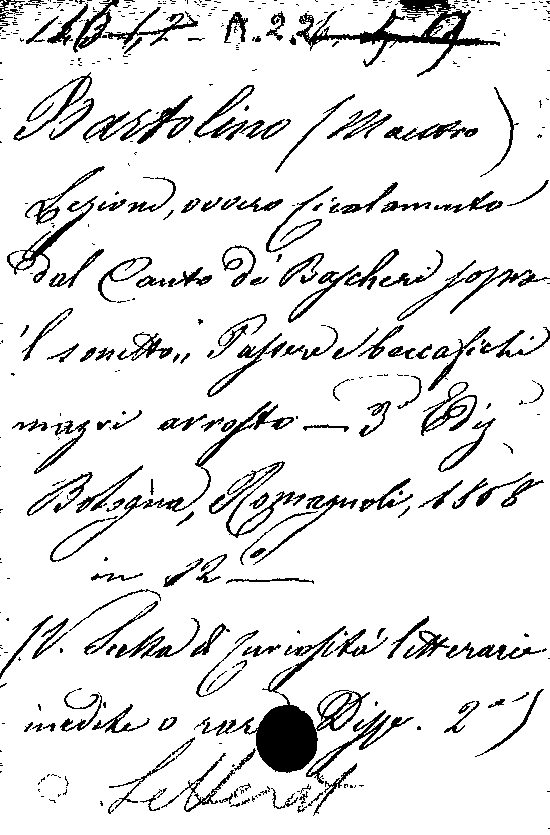 A. 2. 26.
Bartolino (Maestro)
Lezione, ovvero Cicalamento
dal Canto de' Bischeri sopra
'l sonetto,, Passere e beccafichi
magri arrosto — 3ª Ediz
Bologna, Romagnoli, 1868
in 12º —
(V. Scelta di curiosità letterarie
inedite o rare Disp. 2ª)
Letterat